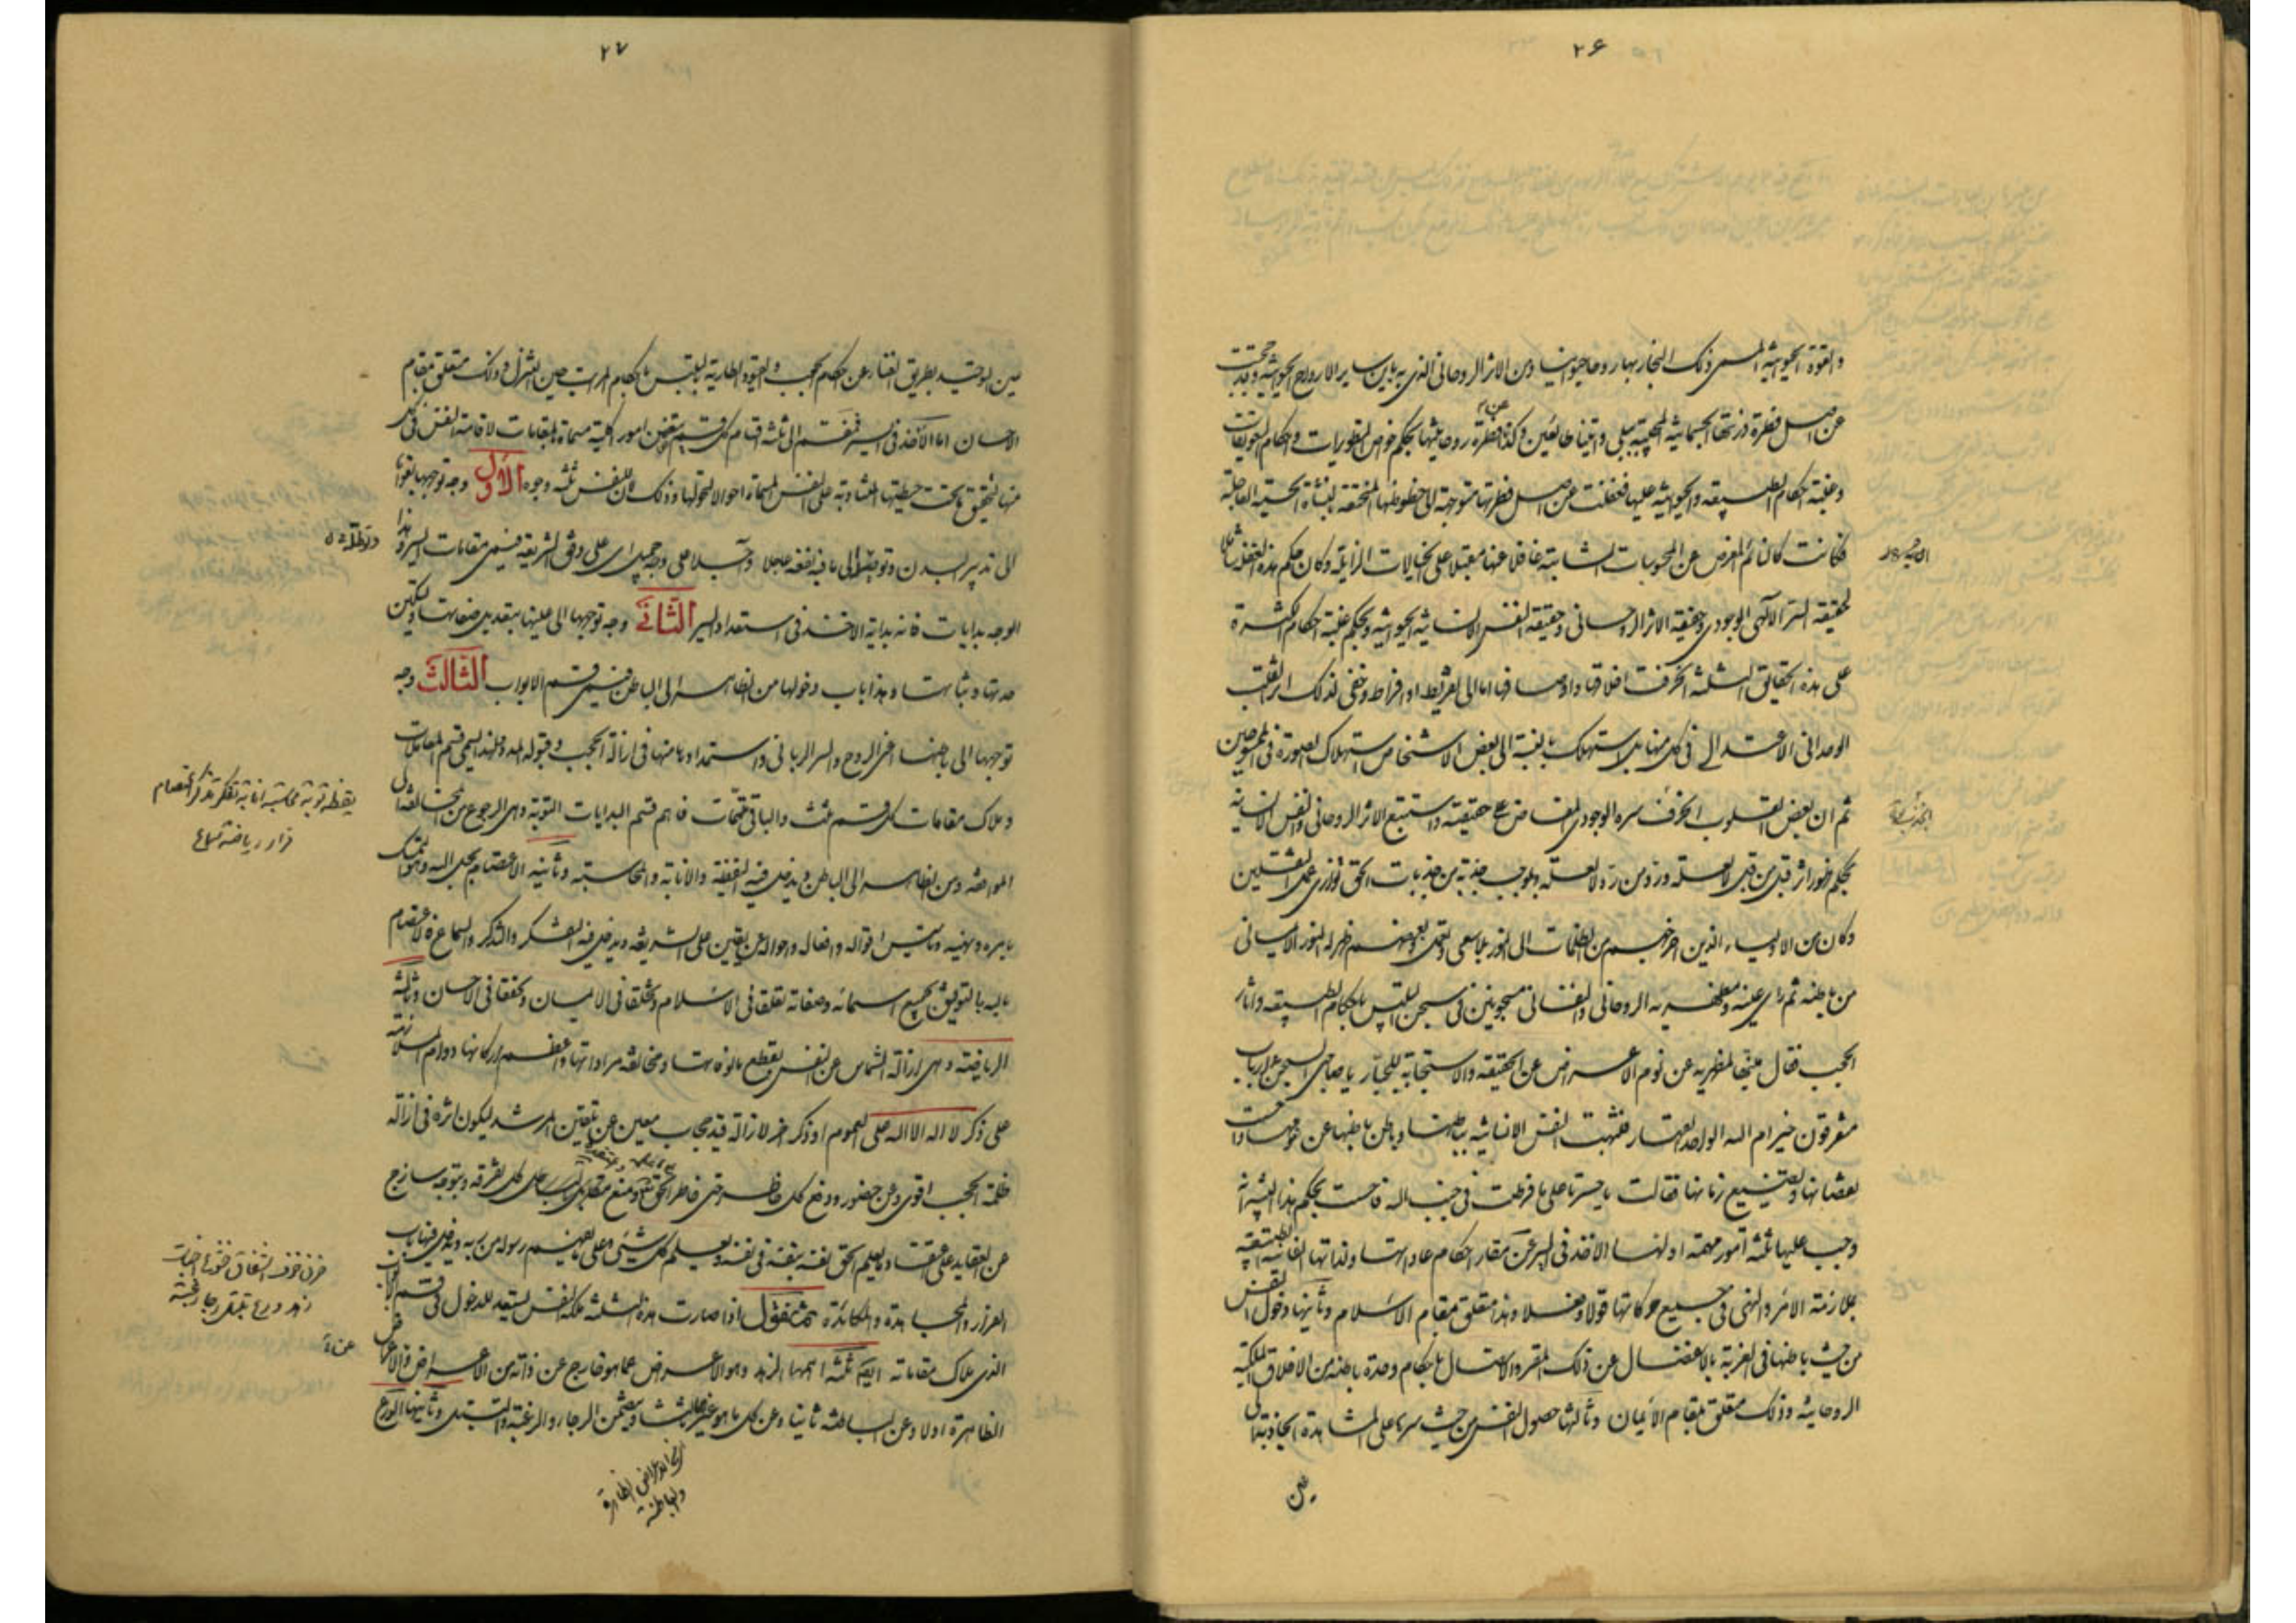 ۲۶
والقوة الحيوانية المسمى ذلك البخار بها روحا حيوانيا ومن الاثر الروحاني الذي به باين ساير الارواح الحيوانية وقد
عن اصل فطرة ذرتها الجسمانية المجيبة ببلى واتينا طائعين وكذا عن فطرة روحانيتها بحكم خواص التطورات واحكام التعويقات
وغلبة احكام الطبيعة والحيوانية عليها فغفلت عن اصل فطرتها متوجهة الى حظوظها المختصة بالنشأة الحسية العاجلة
فكانت كالنائم المعرض عن المحبوبات الثابتة غافلا عنها مقبلا على الخيالات الزايلة وكان حكم هذه الغفلة شاملا
لحقيقة السر الالهي الوجودي وحقيقة الاثر الروحاني وحقيقة النفس الانسانية الحيوانية وبحكم غلبة احكام الكثرة
على هذه الحقايق الثلثة انحرفت اخلاقها واوصافها اما الى تفريط او افراط وخفي لذلك اثر القلب
الوحداني الاعتدالي في كل منها بل استهلك بالنسبة الى بعض الاشخاص استهلاك الصورة في الممسوخين
ثم ان بعض القلوب انحرف سره الوجودي المفاض على حقيقته واستتبع الاثر الروحاني والنفس الانسانية
بحكم ظهور اثر قبل من قبل لا لعلة ورد من رد لا لعلة وبموجب جذبة من جذبات الحق توازي عمل الثقلين
وكان من الاولياء الذين اخرجهم من الظلمات الى النور بلا سعي وتعمل وبعضهم ظهر له النور الايماني
من باطنه ثم راى عينه ومظهريه الروحاني والنفساني مسجونين في سجن التلبس باحكام الطبيعة واثار
الحجب فقال منبها لمظهريه عن نوم الاعراض عن الحقيقة والاستجابة للجبار يا صاحبي السجن ءارباب
متفرقون خير ام الله الواحد القهار فتنبهت النفس الانسانية بباطنها وباطن باطنها عن نومها
بعصيانها وتضييع زمانها فقالت يا حسرتا على ما فرطت في جنب الله فاحست بحكم هذا
وجب عليها ثلثة امور مهمة اولها الاخذ في السير عن مقار احكام عاداتها ولذاتها الفانية
بملازمة الامر والنهي في جميع حركاتها قولا وفعلا وهذا متعلق بمقام الاسلام وثانيها دخول النفس
من حيث باطنها في الغربة بالانفصال عن ذلك المقر والاتصال باحكام وحدة باطنه من الاخلاق الملكية
الروحانية وذلك متعلق بمقام الايمان وثالثها حصول النفس من حيث سرها على المشاهدة الجاذبة الى
عين
۲۷
عين التوحيد بطريق الفناء عن احكام الحجب والقيود الطارية بالتلبس باحكام المراتب حين التنزل وذلك متعلق بمقام
الاحسان اما الاخذ في السير فينقسم الى ثلثة اقسام كل قسم يتضمن امورا كلية مسماة بالمقامات لاقامة النفس في كل
منها لتحقيق ما تحت حيطتها المتناوبة على النفس المسماة احوالا لتحولها وذلك لان للنفس ثلثة وجوه الاول وجه توجهها بقواها
الى تدبير البدن وتوصله الى ما فيه نفعه عاجلا وآجلا على وجه جميل اى على وفق الشريعة فيسمى مقامات السير وهذا
الوجه بدايات فانه بداية الاخذ في استعداد السير الثاني وجه توجهها الى عينها بتعديل صفاتها وتسكين
حدتها وثباتها وهذا باب دخولها من الظاهر الى الباطن فيسمى قسم الابواب الثالث وجه
توجهها الى باطنها اعني الروح والسر الرباني واستمدادها منها في ازالة الحجب وقبوله له ولهذا يسمى قسم المعاملات
وملاك مقامات كل قسم ثلث والباقي متممات فاهم قسم البدايات التوبة وهي الرجوع من المخالفة الى
الموافقة ومن الظاهر الى الباطن ويدخل فيه اليقظة والانابة والمحاسبة وثانيه الاعتصام بحبل الله وهو التمسك
بامره ونهيه وتاسيس اقواله وافعاله واحواله عن يقين على الشريعة ويدخل فيه التفكر والتذكر والسماع ثم الاعتصام
بالله بالتوفيق بجميع اسمائه وصفاته تعلقا في الاسلام وتخلقا في الايمان وتحققا في الاحسان وثالثه
الرياضة وهي ازالة الشماس عن النفس بقطع مالوفاتها ومخالفة مراداتها واعظم اركانها دوام الملازمة
على ذكر لا اله الا الله على العموم او ذكر اخر لازالة قيد حجاب معين عن تلقين المرشد ليكون اثره في ازالة
ظلمة الحجب اقوى وعن حضور ودفع كل خاطر حتى خاطر الحق على كل تفرقة وبتوجه ساذج
عن العقايد على اعتقاد ما يعلم الحق نفسه بنفسه في نفسه ويعلم كل شيء وعلى ما يعلم رسوله من ربه ويدخل فيها باب
الفرار والمجاهدة والمكابدة ثم نقول اذا صارت هذه الثلثة ملكة النفس يستعد للدخول في قسم
الذي ملاك مقاماته ايضا ثلثة اهمها الزهد وهو الاعراض عما هو خارج عن ذاته من الاعراض والاغراض
الظاهرة اولا وعن الباطنة ثانيا وعن كل ما هو غير الحق ثالثا ويتضمن الرجاء والرغبة والتبتل وثانيها الورع
يقظه توبة محاسبة انابة تفكر تذكر اعتصام
فرار رياضة سماع
حزن خوف اشفاق خشوع اخبات
زهد ورع تبتل رجا رغبة